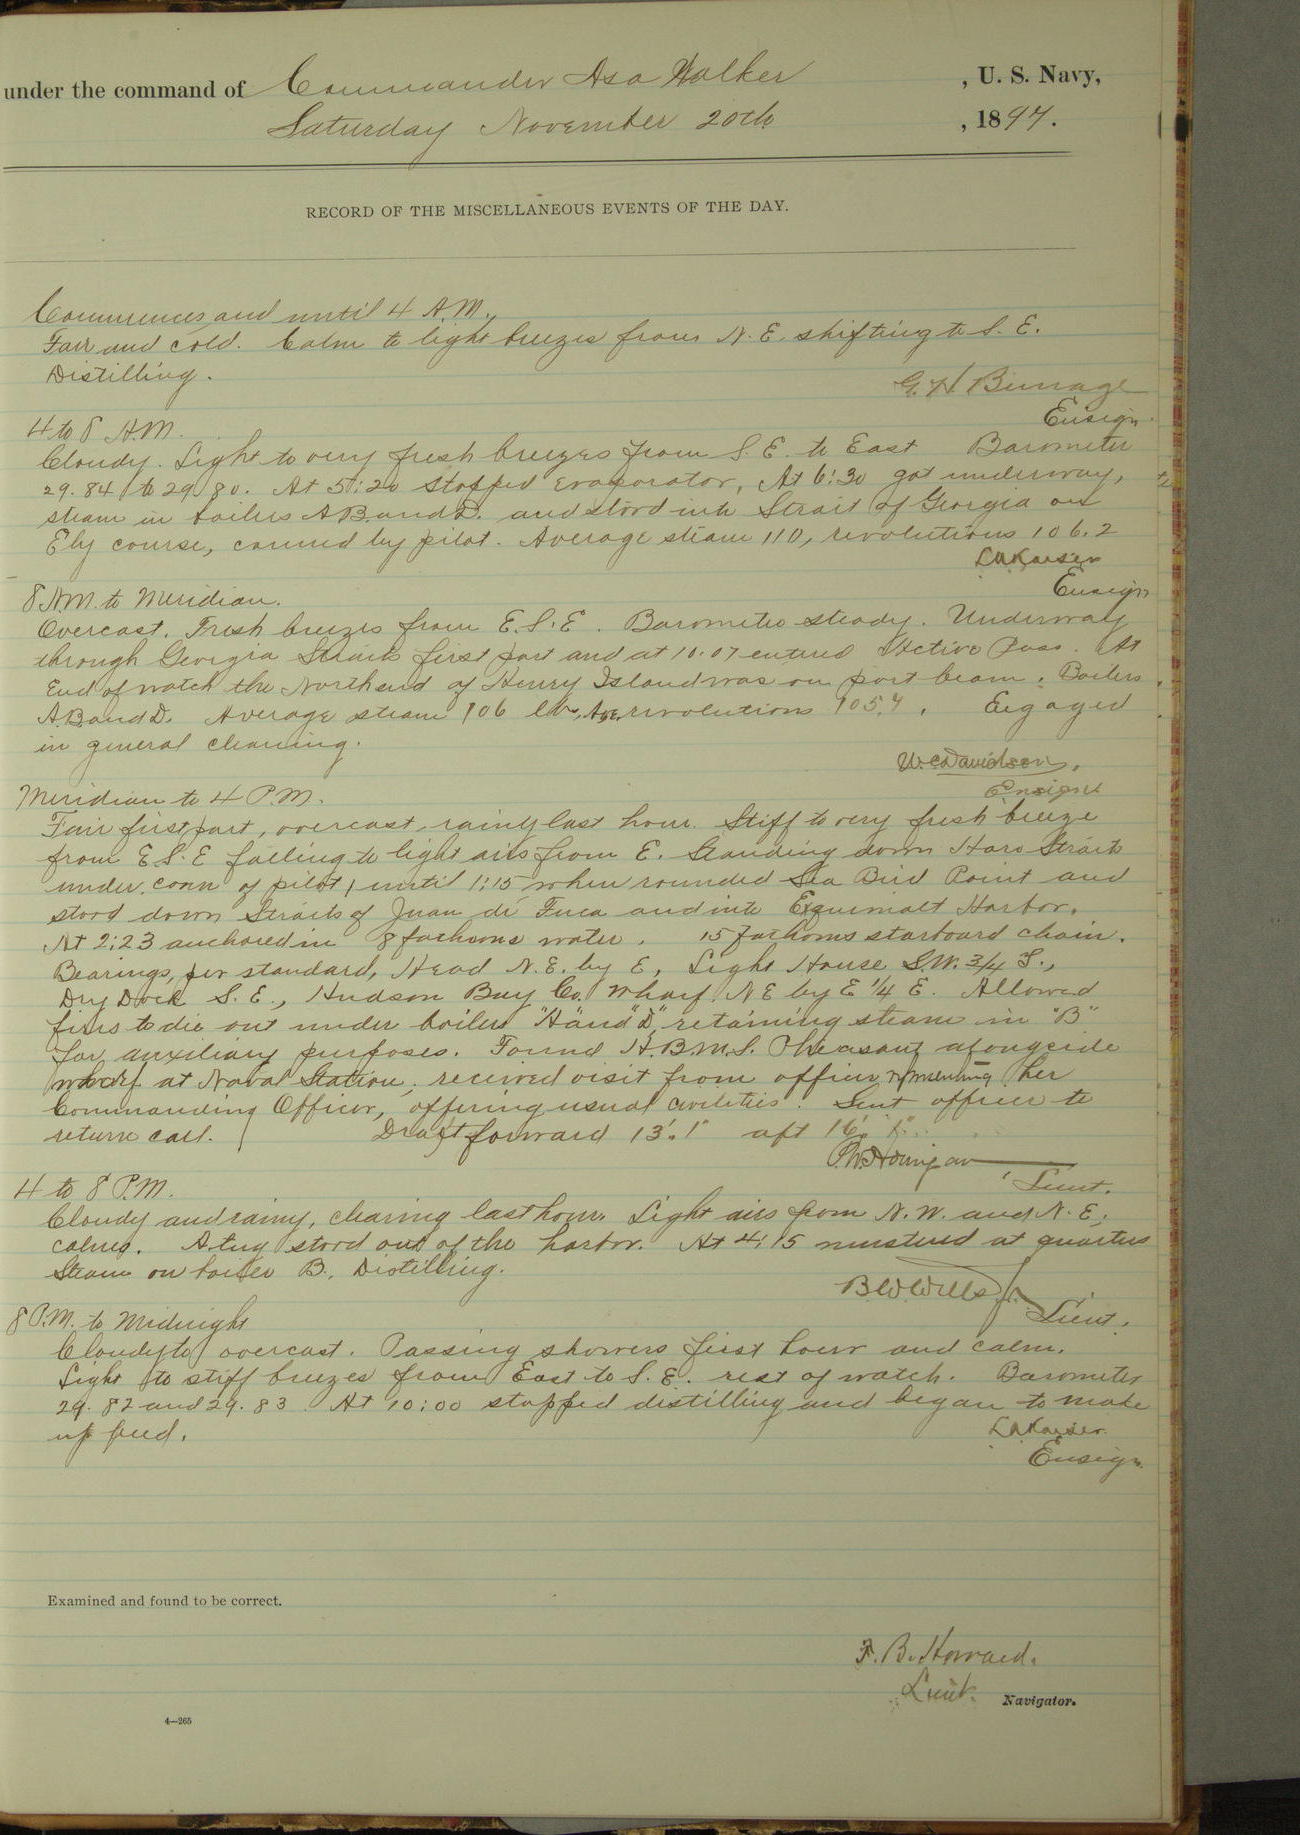 under the command of Commander Asa Walker , U. S. Navy,
Saturday November 20th , 1897.
RECORD OF THE MISCELLANEOUS EVENTS OF THE DAY.
Commences and until 4 A.M.
Fair and cold. Calm to light breezes from N.E. shifting to S.E.
Distilling.
G. H. Burrage
Ensign
4 to 8 A.M.
Cloudy. Light to very fresh breezes from S.E. to East Barometer
29.84 to 29.80. At 5:20 stopped evaporator, At 6:30 got underway,
steam in boilers A B and D. and stood into Strait of Georgia on
Ely course, conned by pilot. Average steam 110, revolutions 106.2
L A Kaiser
Ensign
8 A.M. to Meridian.
Overcast. Fresh breezes from E.S.E. Barometer steady. Underway
through Georgia Strait first part and at 10.07 entered Active Pass. At
end of watch the North end of Henry Island was on port beam. Boilers
A B and D. Average steam 106 lbs, Ave. revolutions 105.7. Engaged
in general cleaning.
W. C. Davidson,
Ensign
Meridian to 4 P.M.
Fair first part, overcast, rainy last hour. Stiff to very fresh breeze
from E.S.E falling to light airs from E. Standing down Haro Strait
under conn of pilot, until 1:15 when rounded Sea Bird Point and
stood down Straits of Juan de Fuca and into Esquimalt Harbor.
At 2:23 anchored in 8 fathoms water. 15 fathoms starboard chain.
Bearings, per standard, Head N.E. by E, Light House S.W. 3/4 S.,
Dry Dock S.E., Hudson Bay Co. Wharf. N E by E 1/4 E. Allowed
fires to die out under boilers "A" and "D", retaining steam in "B"
for auxiliary purposes. Found H.B.M.S. Pheasant alongside
wharf at Naval Station; received visit from officer representing her
Commanding Officer, offering usual civilities. Sent officer to
return call. Draft forward 13'.1" aft 16'
Lieut.
4 to 8 P.M.
Cloudy and rainy, clearing last hour. Light airs from N.W. and N.E.;
calms. A tug stood out of the harbor. At 4:15 mustered at quarters
Steam on boiler B. Distilling.
B W Wells Jr. Lieut.
8 P.M. to Midnight
Cloudy to overcast. Passing showers first hour and calm.
Light to stiff breezes from East to S.E. rest of watch. Barometer
29.82 and 29.83. At 10:00 stopped distilling and began to make
up feed.
L A Kaiser
Ensign
Examined and found to be correct.
F. B. Howard.
Lieut. Navigator.
4—265